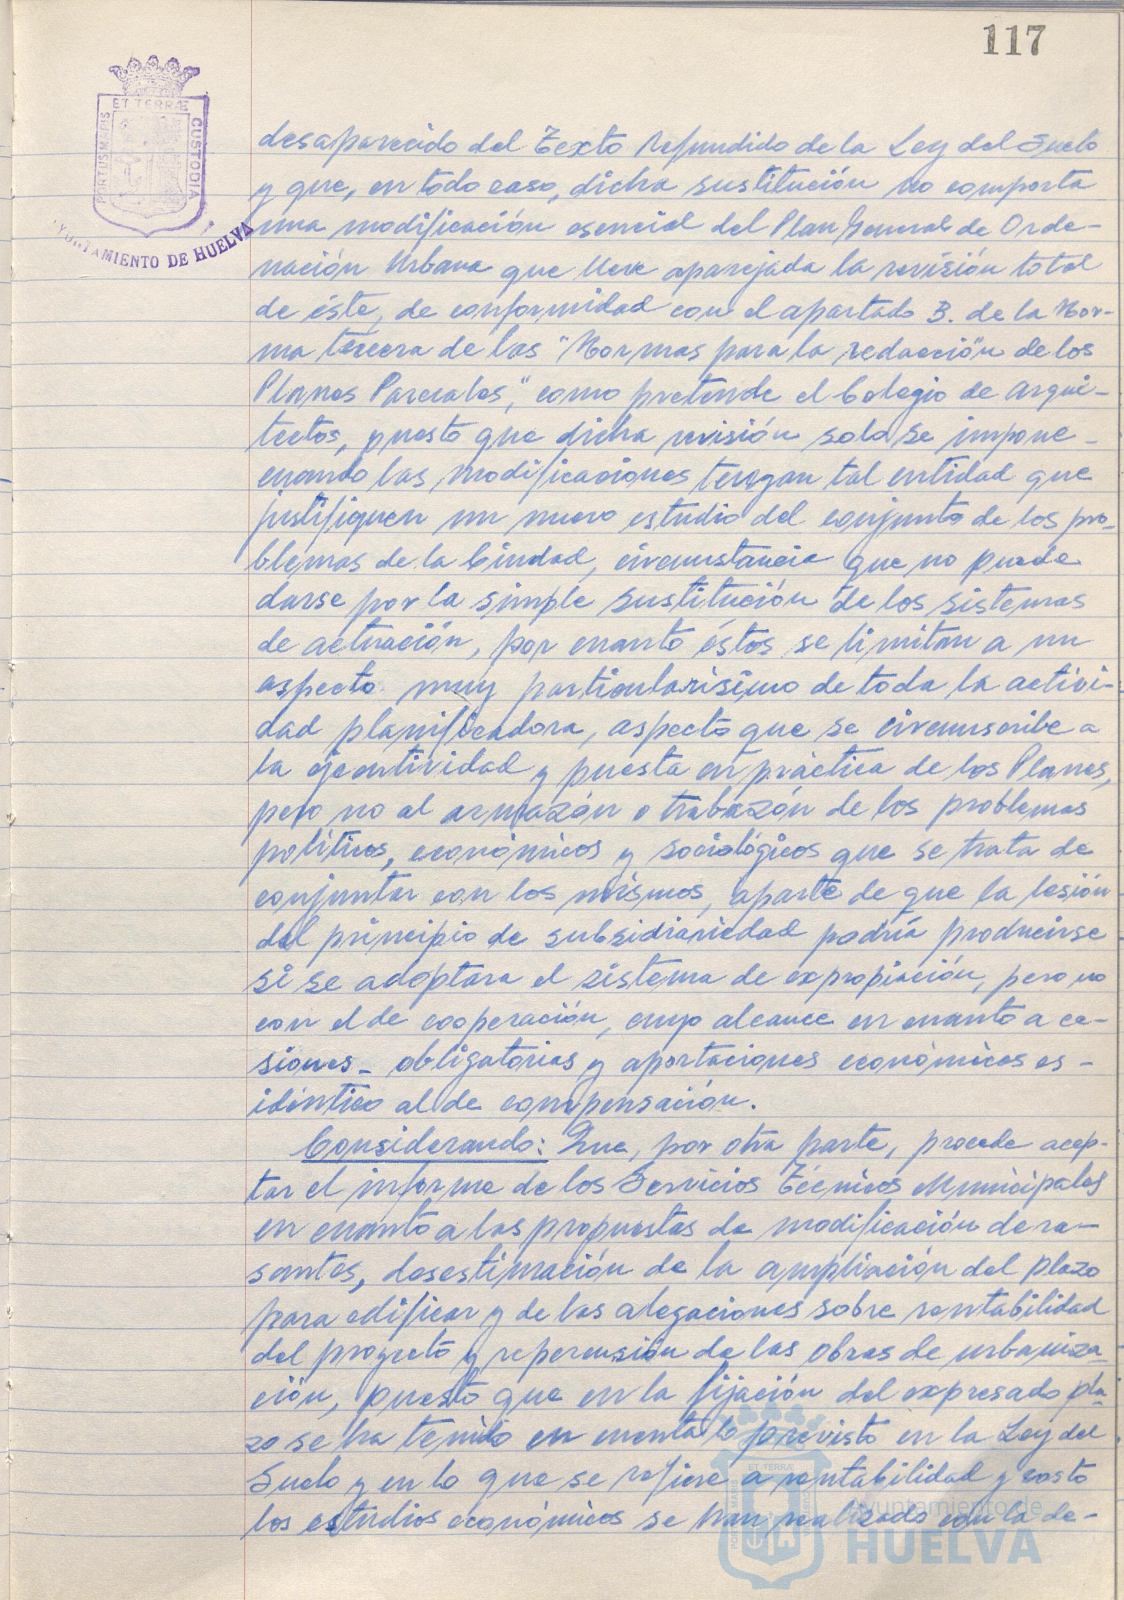 117
ET TERRÆ
PORTUS MARIS
CUSTODIA
AYUNTAMIENTO DE HUELVA
desaparecido del Texto Refundido de la Ley del Suelo
y que, en todo caso, dicha sustitución no comporta
una modificación esencial del Plan General de Orde-
nación Urbana que lleve aparejada la revisión total
de éste, de conformidad con el apartado 3. de la Nor-
ma tercera de las "Normas para la redacción de los
Planes Parciales", como pretende el Colegio de Arqui-
tectos, puesto que dicha revisión sola se impone-
cuando las modificaciones tengan tal entidad que
justifiquen un nuevo estudio del conjunto de los pro-
blemas de la Ciudad, circunstancia que no puede
darse por la simple sustitución de los sistemas
de actuación, por cuanto éstos se limitan a un
aspecto muy particularísimo de toda la activi-
dad planificadora, aspecto que se circunscribe a
la ejecutividad y puesta en práctica de los Planes,
pero no al armazón o trabazón de los problemas
políticos, económicos y sociológicos que se trata de
conjuntar con los mismos, aparte de que la lesión
del principio de subsidiariedad podría producirse
si se adoptara el sistema de expropiación, pero no
con el de cooperación, cuyo alcance en cuanto a ce-
siones- obligatorias y aportaciones económicas es-
idéntico al de compensación.
Considerando: Que, por otra parte, procede acep-
tar el informe de los Servicios Técnicos Municipales
en cuanto a las propuestas de modificación de ra-
santes, desestimación de la ampliación del plazo
para edificar y de las alegaciones sobre rentabilidad
del proyecto y repercusión de las obras de urbaniza-
ción, puesto que en la fijación del expresado pla-
zo se ha tenido en cuenta lo previsto en la Ley del
Suelo y en lo que se refiere a rentabilidad y costo
los estudios económicos se han realizado con la de-
ET TERRÆ
PORTUS MARIS
Ayuntamiento de
HUELVA